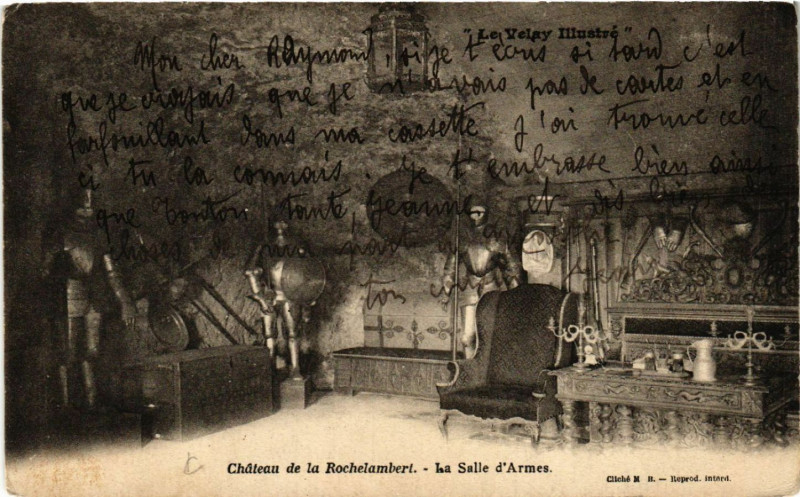 " Le Velay Illustré "
Mon cher Raymond, si je t'écris si tard c'est
que je croyais que je n'avais pas de cartes et en
farfouillant dans ma cassette j'ai trouvé celle
ci tu la connais. Je t'embrasse bien ainsi
que Tonton, tante, Jeanne et dis bien des
choses de ma part à
ton
C
Château de la Rochelambert. - La Salle d'Armes.
Cliché M B. — Reprod. interd.